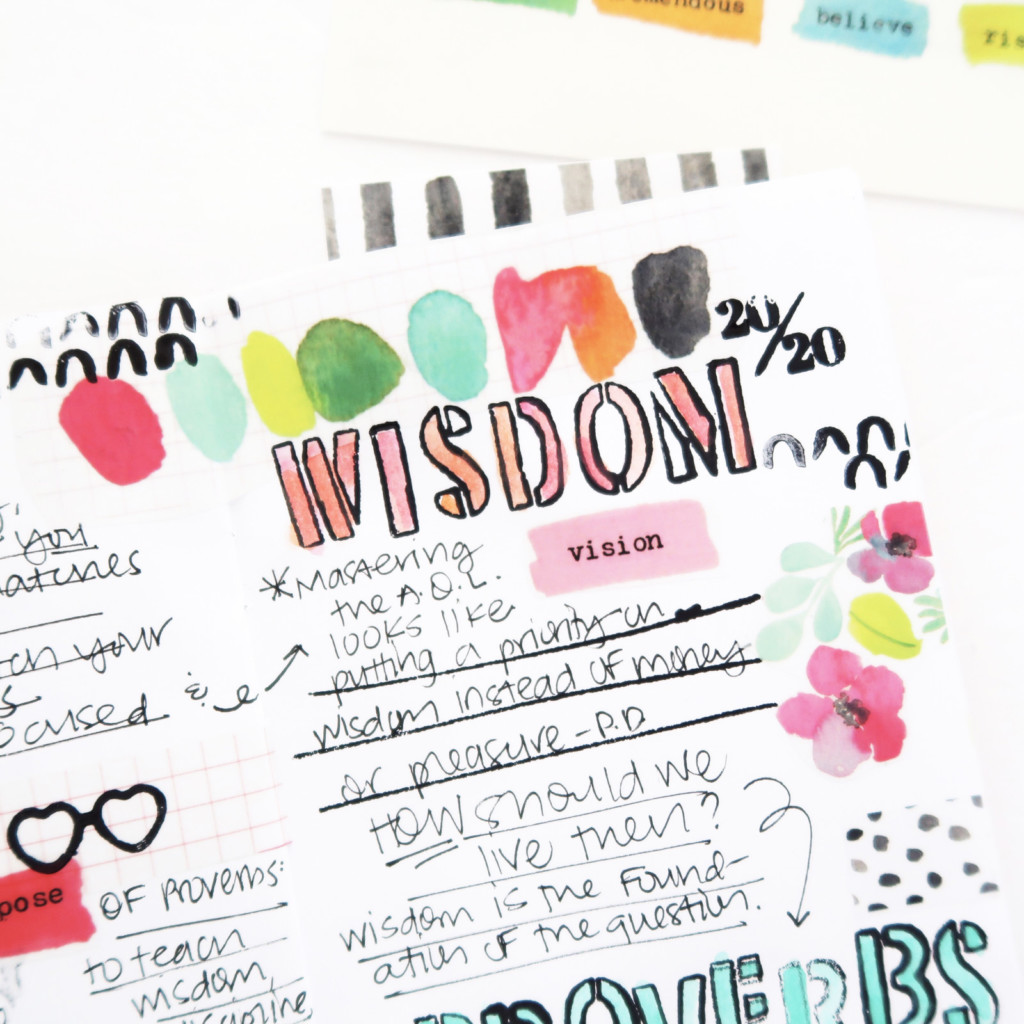 believe
20/20
WISDOM
vision
you
your
ocused
&
*Mastering
the A.O.L.
looks like
putting a priority on
wisdom instead of money
or pleasure - P.D
HOW should we
live then?
wisdom is the Found-
ation of the question.
PROVERBS
pose
OF Proverbs:
to teach
wisdom,